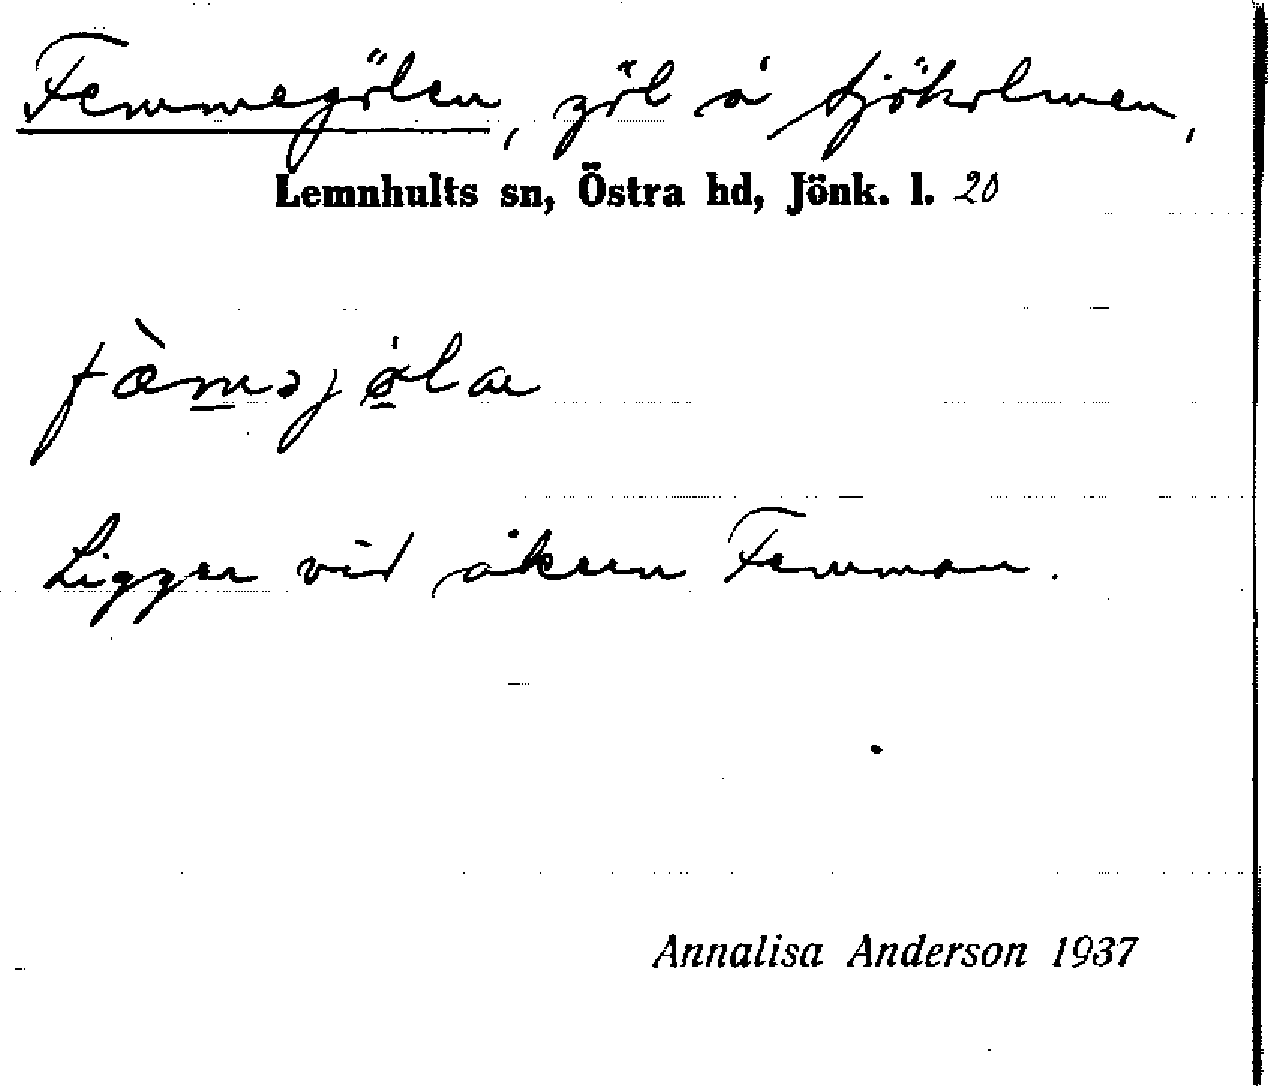 Femmegölen, göl å Sjöholmen,
Lemnhults sn, Östra hd, Jönk. l. 20
fæ̀məjøla
Ligger vid åkern Femman.
Annalisa Anderson 1937